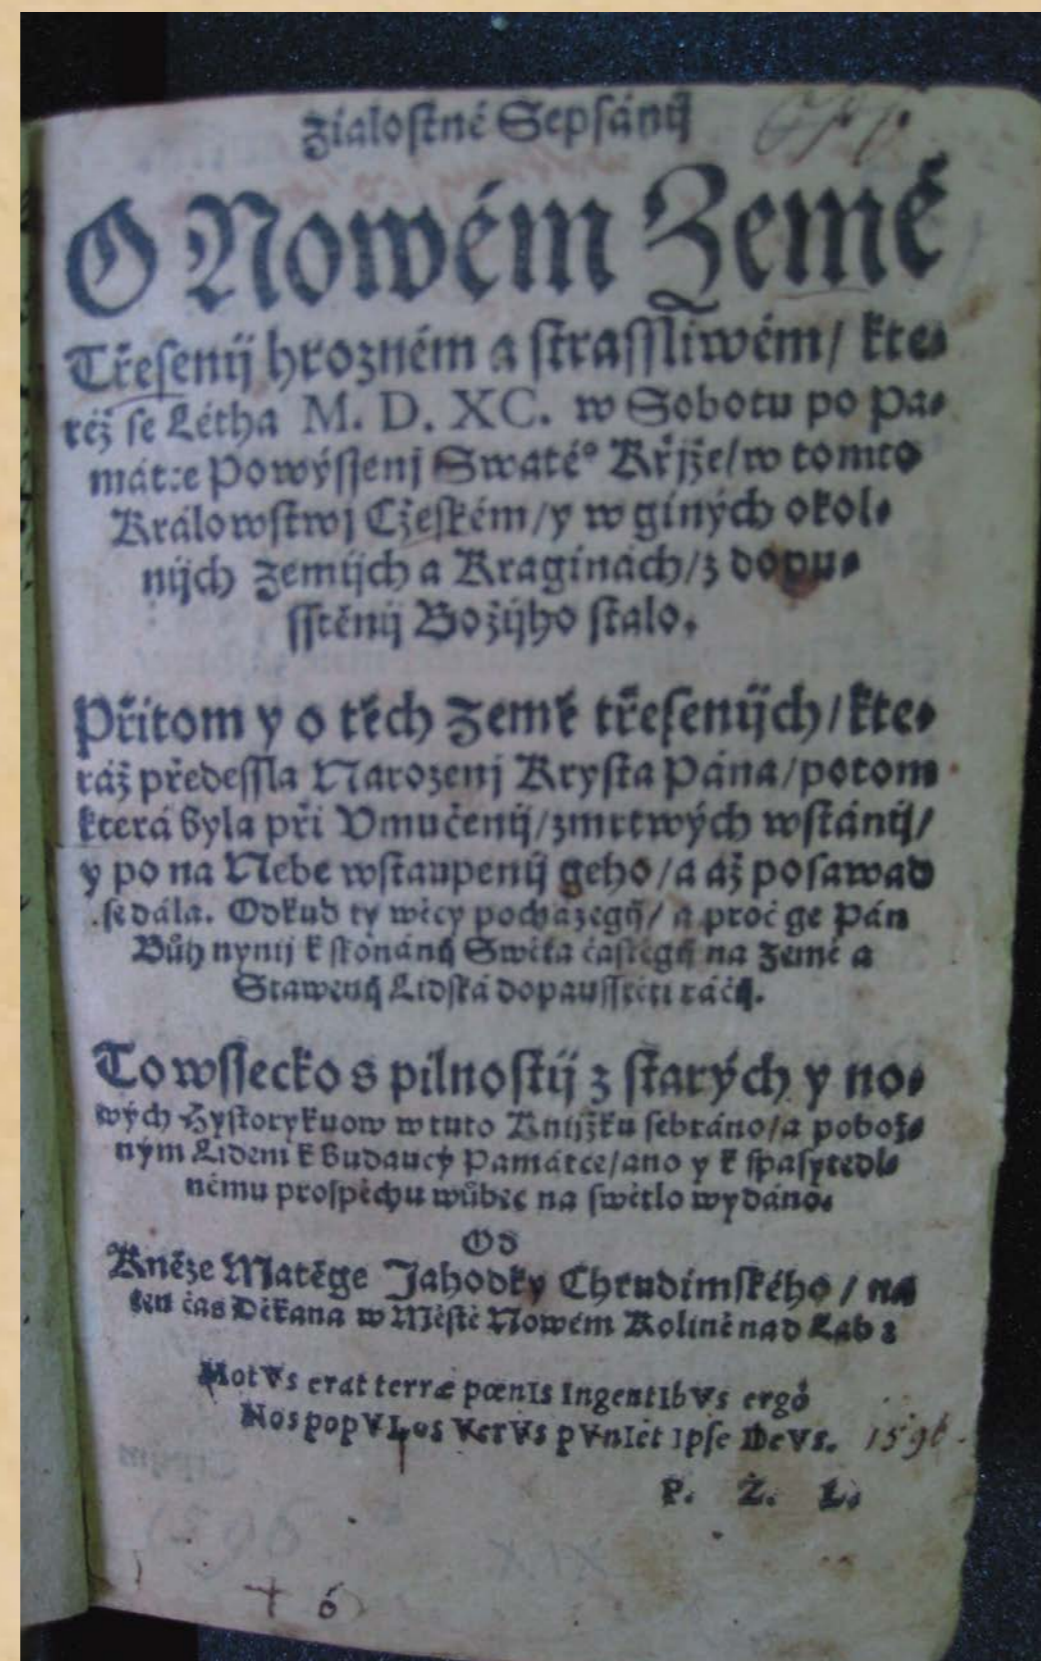 Zialostné Sepsánij
O Nowém Země
Třesenij hrozném a strassliwém / kte⸗
réž se Létha M. D. XC. w Sobotu po Pa⸗
mátce Powýssenj Swaté° Křjže / w tomto
Králowstwj Cžeském / y w giných okol⸗
nijch Zemijch a Kraginách / z dopu⸗
sstěnij Božijho stalo.
Přitom y o těch Země třesenijch / kte⸗
ráž předessla Narozenj Krysta Pána / potom
která byla při Vmučenij / zmrtwých wstánij /
y po na Nebe wstaupenij geho / a až posawad
se dála. Odkud ty wěcy pocházegij / a proč ge Pán
Bůh nynij k skonánij Swěta častěgij na Země a
Stawenij Lidská dopausstěti ráčij.
To wssecko s pilnostij z starých y no⸗
wých Hystorykuow w tuto Knijžku sebráno / a pobož⸗
ným Lidem k budaucý Památce / ano y k spasytedl⸗
nému prospěchu wůbec na swětlo wydáno.
Od
Kněze Matěge Jahodky Chrudimského / na
ten čas Děkana w Městě Nowém Kolině nad Lab:
MotVs erat terræ pœnIs IngentIbVs ergó
Nos popVLos VerVs pVnIet Ipse DeVs. 1596.
P. Ž. L.
1596
XIX
+ 6